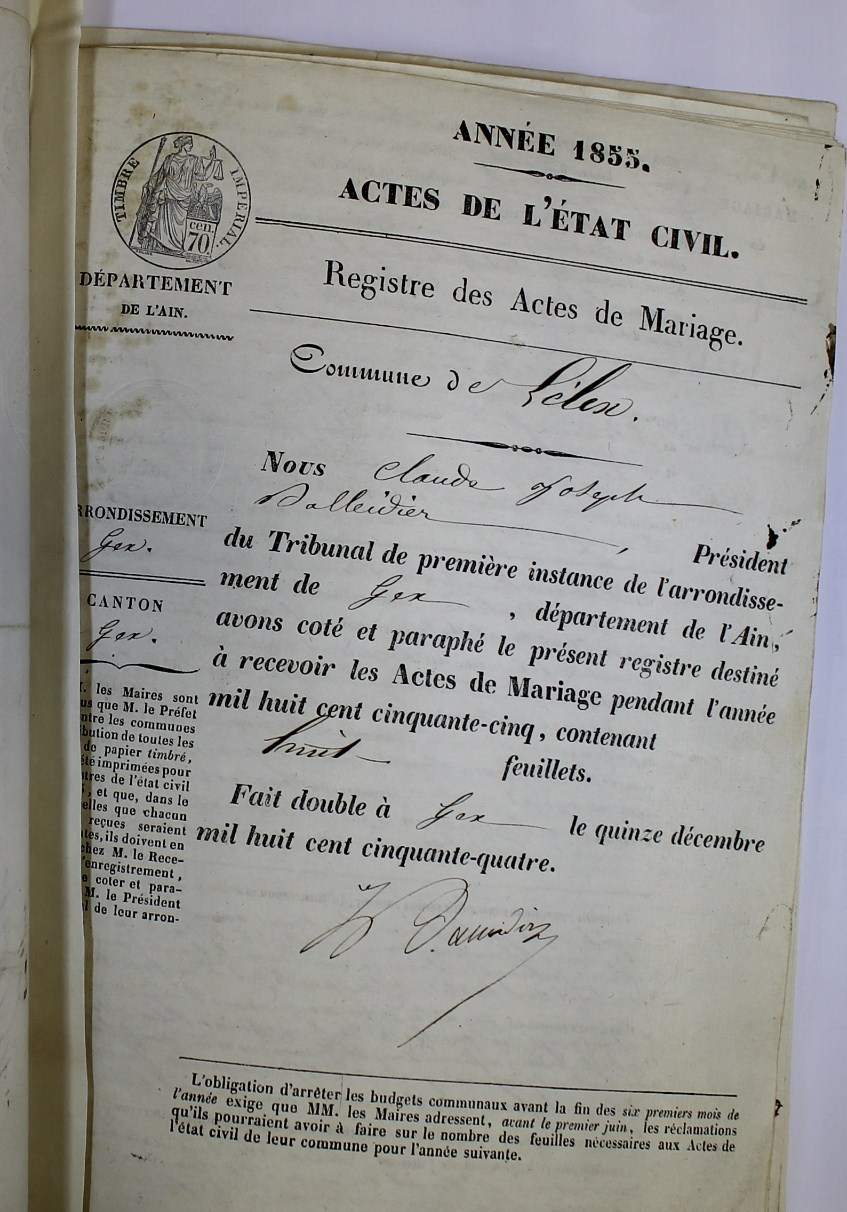 ANNÉE 1855.
ACTES DE L'ÉTAT CIVIL.
TIMBRE IMPERIAL.
cen.
70
DÉPARTEMENT
DE L'AIN.
Registre des Actes de Mariage.
Commune de Lélex.
Nous Claude Joseph
Balleidier, Président
du Tribunal de première instance de l'arrondisse-
ment de Gex, département de l'Ain,
avons coté et paraphé le présent registre destiné
à recevoir les Actes de Mariage pendant l'année
mil huit cent cinquante-cinq, contenant
huit feuillets.
Fait double à Gex le quinze décembre
mil huit cent cinquante-quatre.
RRONDISSEMENT
Gex.
CANTON
Gex.
. les Maires sont
us que M. le Préfet
ntre les communes
bution de toutes les
de papier timbré,
été imprimées pour
tres de l'état civil
, et que, dans le
elles que chacun
reçues seraient
tes, ils doivent en
chez M. le Rece-
'enregistrement,
e coter et para-
M. le Président
l de leur arron-
L'obligation d'arrêter les budgets communaux avant la fin des six premiers mois de
l'année exige que MM. les Maires adressent, avant le premier juin, les réclamations
qu'ils pourraient avoir à faire sur le nombre des feuilles nécessaires aux Actes de
l'état civil de leur commune pour l'année suivante.